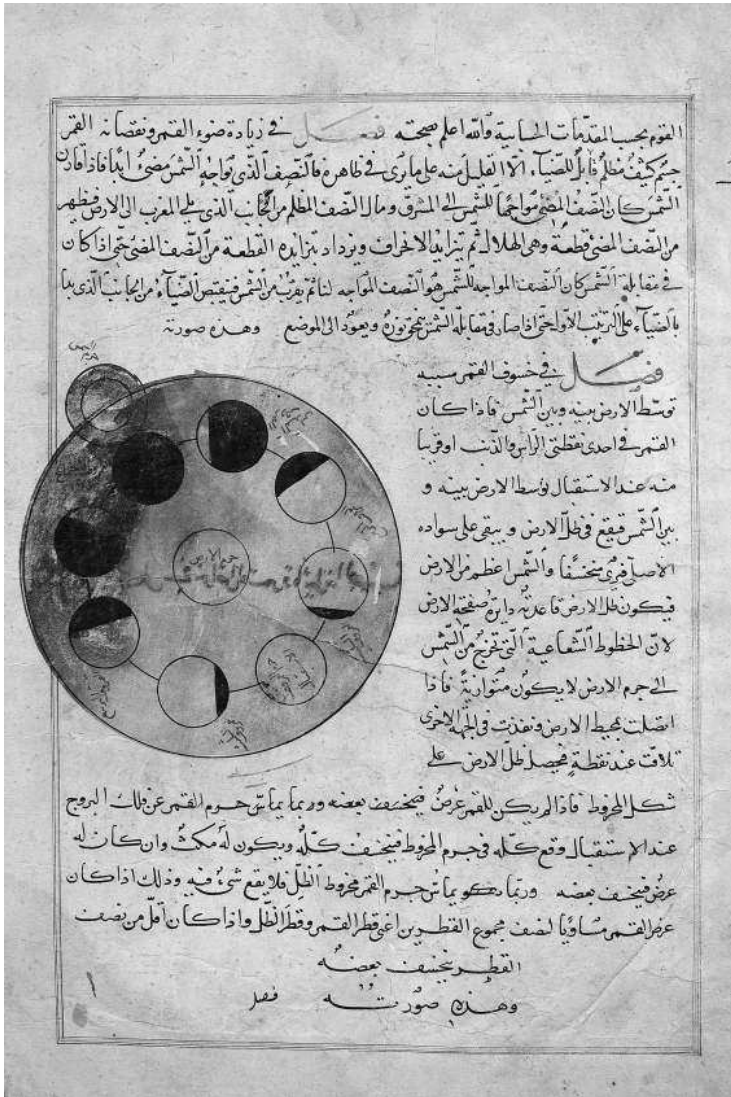 القوم بحسب المقدمات الحسابية والله اعلم بصحته فصل في زيادة ضوء القمر ونقصانه القمر
جسم كثيف مظلم قابل للضياء الا القليل منه على ما يرى في ظاهره فالنصف الذي يواجه الشمس مضئ ابدا فاذا قارن
الشمس كان النصف المضئ مواجها للشمس الى المشرق ومال النصف المظلم من الجانب الذي يلي المغرب الى الارض فيظهر
من النصف المضئ قطعة وهى الهلال ثم يتزايد الانحراف ويزداد بتزايده القطعة من النصف المضئ حتى اذا كان
في مقابلة الشمس كان النصف المواجه للشمس هو النصف المواجه لنا ثم يقرب من الشمس فينقص الضياء من الجانب الذي بدا
بالضياء على الترتيب الاول حتى اذا صار في مقابلة الشمس ينمحق نوره ويعود الى الموضع وهذه صورته
فصل في خسوف القمر سببه
توسط الارض بينه وبين الشمس فاذا كان
القمر في احدى نقطتي الراس والذنب او قريبا
منه عند الاستقبال توسط الارض بينه و
بين الشمس فيقع في ظل الارض ويبقى على سواده
الاصلى فيرى منخسفا والشمس اعظم من الارض
فيكون ظل الارض قاعدته دايرة صفحة الارض
لان الخطوط الشعاعية التي تخرج من الشمس
الى جرم الارض لا يكون متوازية فاذا
اتصلت بمحيط الارض ونفذت في الجهة الاخرى
تلاقت عند نقطة فيحصل ظل الارض على
شكل المخروط فاذا لم يكن للقمر عرض فينخسف بعضه وربما يماس جرم القمر عن فلك البروج
عند الاستقبال وقع كله في جرم المخروط فينخسف كله ويكون له مكث وان كان له
عرض فينخسف بعضه وربما يماس جرم القمر مخروط الظل فلا يقع شئ فيه وذلك اذا كان
عرض القمر مساويا لنصف مجموع القطرين اعنى قطر القمر وقطر الظل واذا كان اقل من نصف
القطر ينخسف بعضه
وهذه صورته فصل